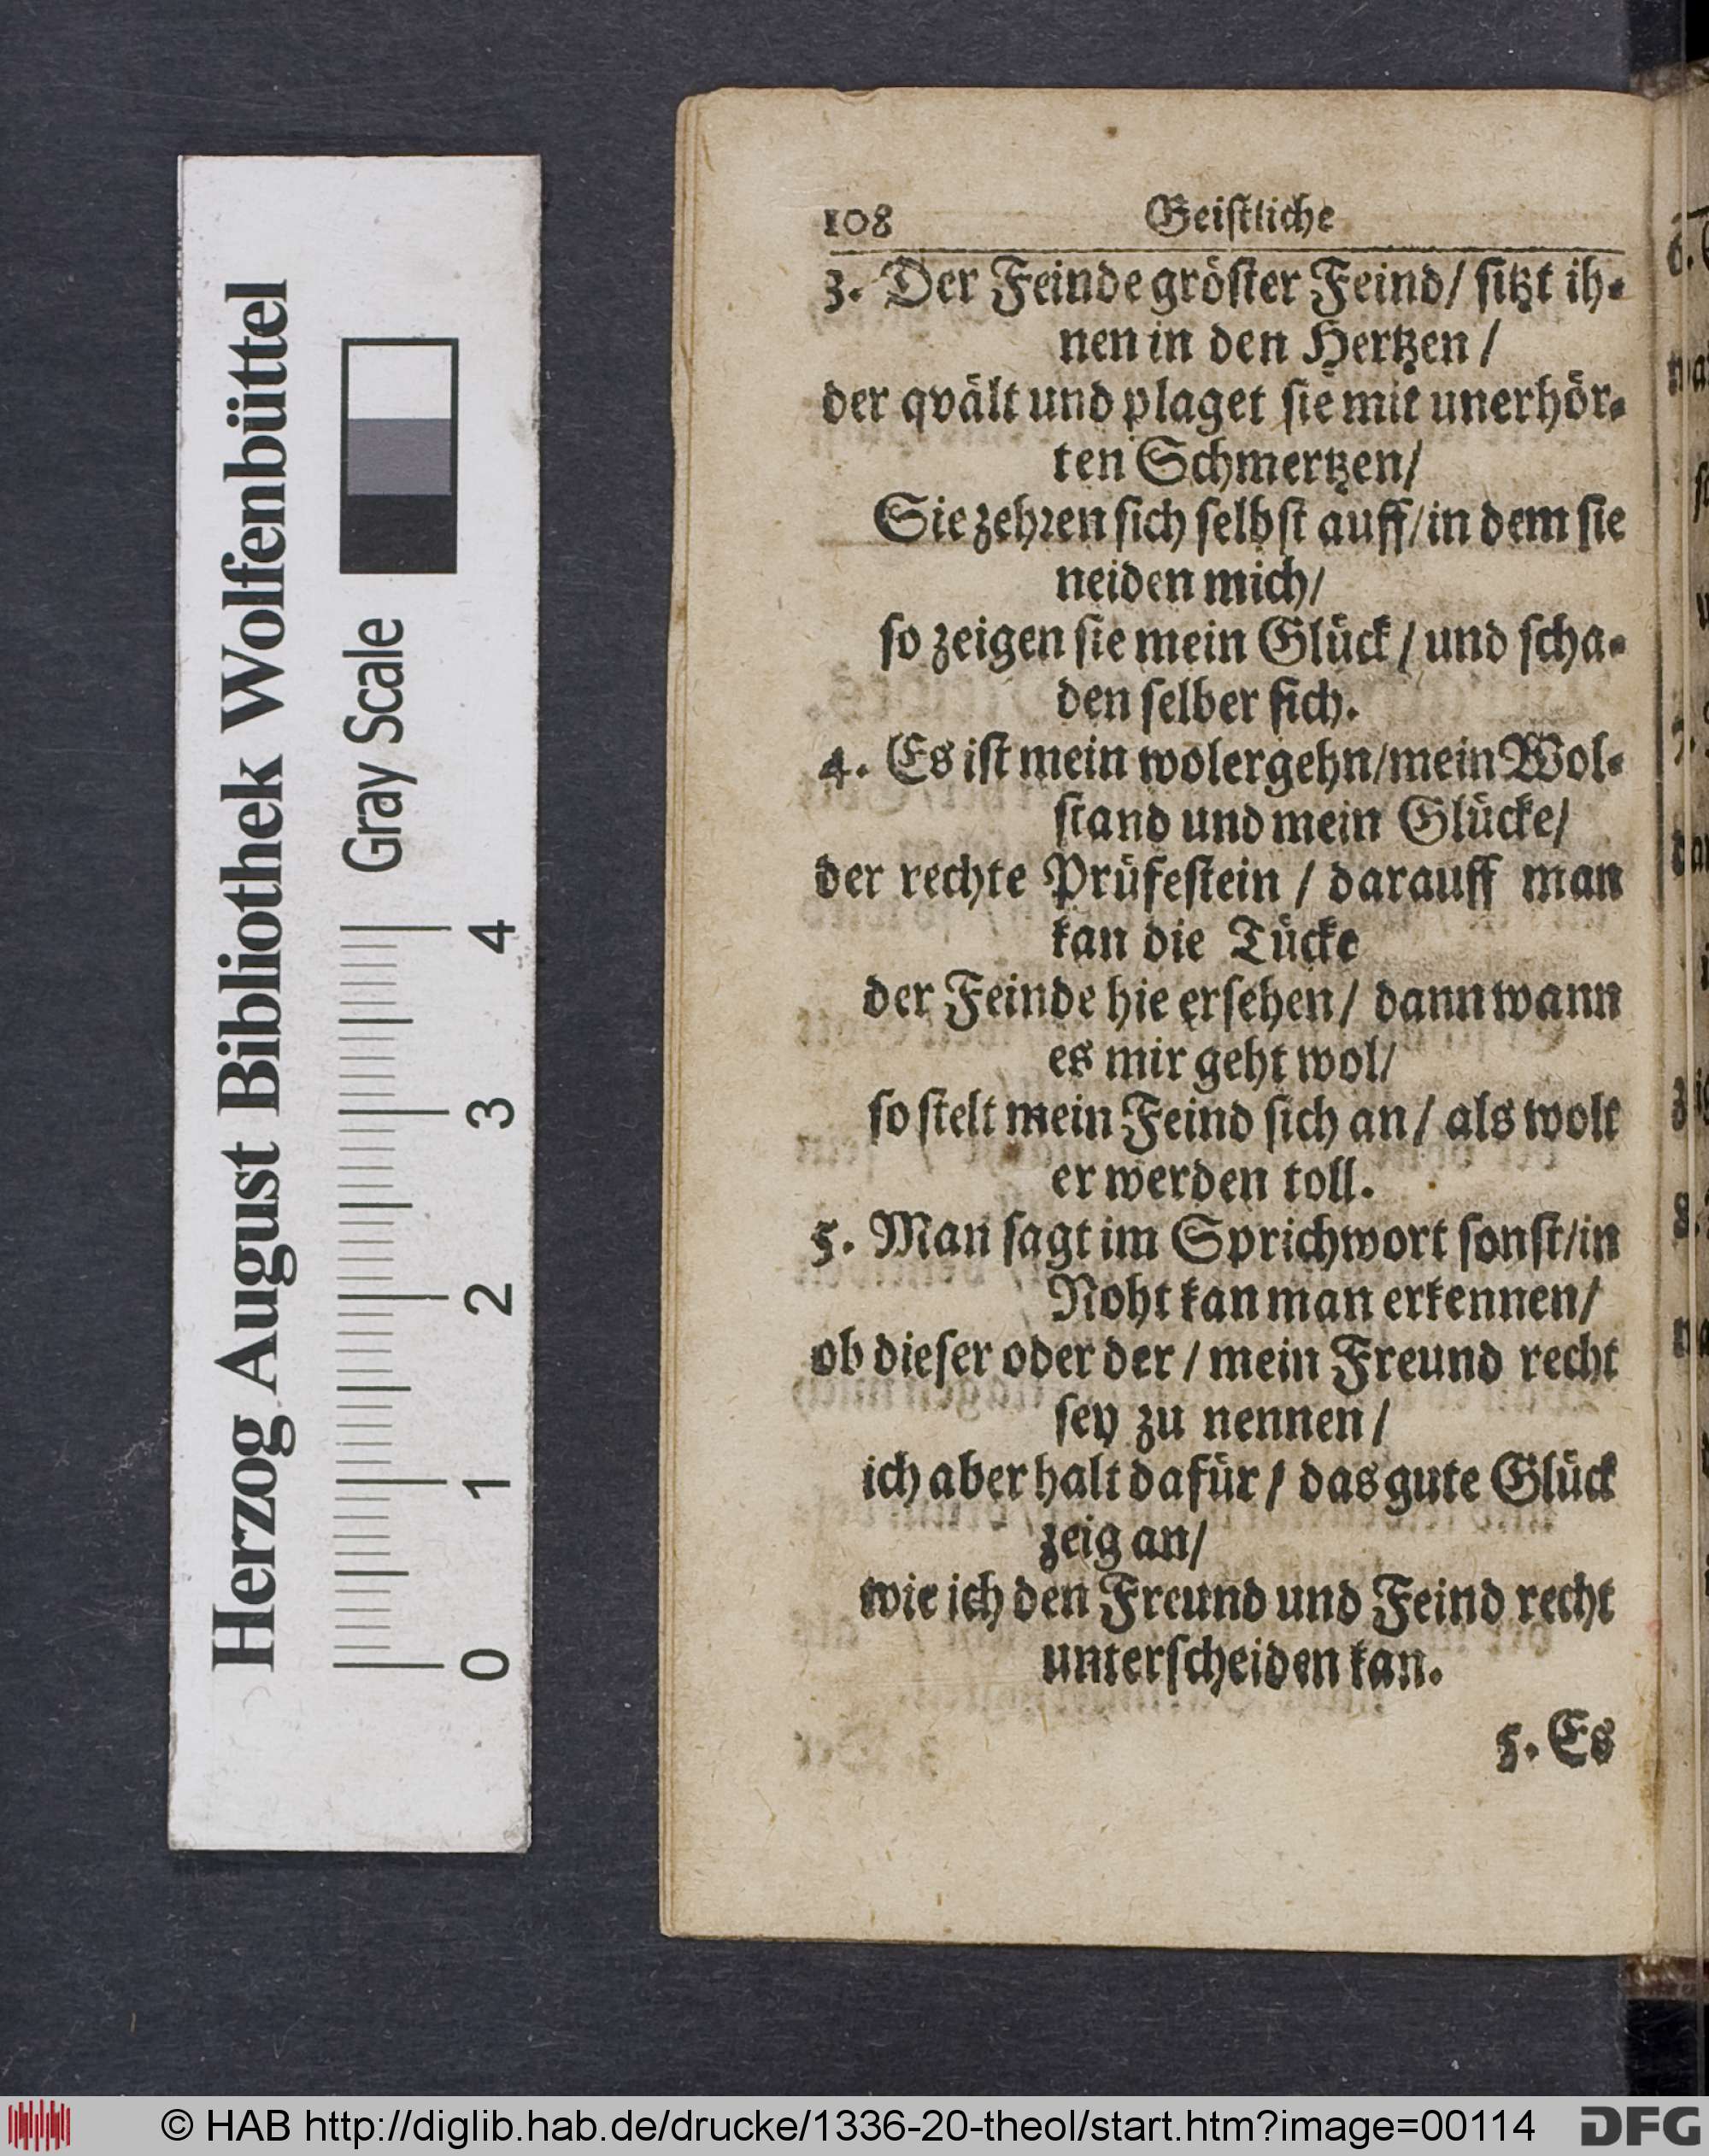 Herzog August Bibliothek Wolfenbüttel
Gray Scale
0 1 2 3 4
108 Geiſtliche
3. Der Feinde gröſter Feind/ ſitzt ih-
nen in den Hertzen /
der qvält und plaget ſie mit unerhör-
ten Schmertzen/
Sie zehren ſich ſelbſt auff/in dem ſie
neiden mich/
ſo zeigen ſie mein Glück / und ſcha-
den ſelber ſich.
4. Es iſt mein wolergehn/mein Wol-
ſtand und mein Glücke/
der rechte Prüfeſtein / darauff man
kan die Tücke
der Feinde hie erſehen/ dann wann
es mir geht wol/
ſo ſtelt mein Feind ſich an/ als wolt
er werden toll.
5. Man ſagt im Sprichwort ſonſt/in
Noht kan man erkennen/
ob dieſer oder der / mein Freund recht
ſey zu nennen /
ich aber halt dafür / das gute Glück
zeig an/
wie ich den Freund und Feind recht
unterſcheiden kan.
5. Es
© HAB http://diglib.hab.de/drucke/1336-20-theol/start.htm?image=00114
DFG